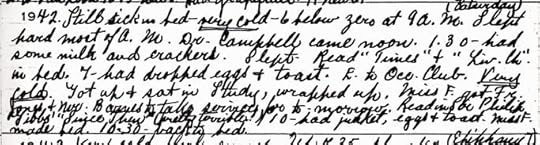 (Saturday)
1942. Still sick in bed very cold - 6 below zero at 9 A.M. Slept
hard most of A.M. Dr. Campbell came noon. 1.30 - had
some milk and crackers. Slept. Read "Times" & "Liv. Ch."
in bed. 7 - had dropped eggs & toast. E. to Occ. Club. Very
cold. Got up & sat in Study, wrapped up. Miss F. got Fr.
Jones & Mr. Barnes to take services for tomorrow. Reading Sir Philip
Gibbs' "Since Then" (pretty terrible). 10 - had junket, eggs & toast. Miss F.
made bed. 10.30 - back to bed.
(Epiphany)